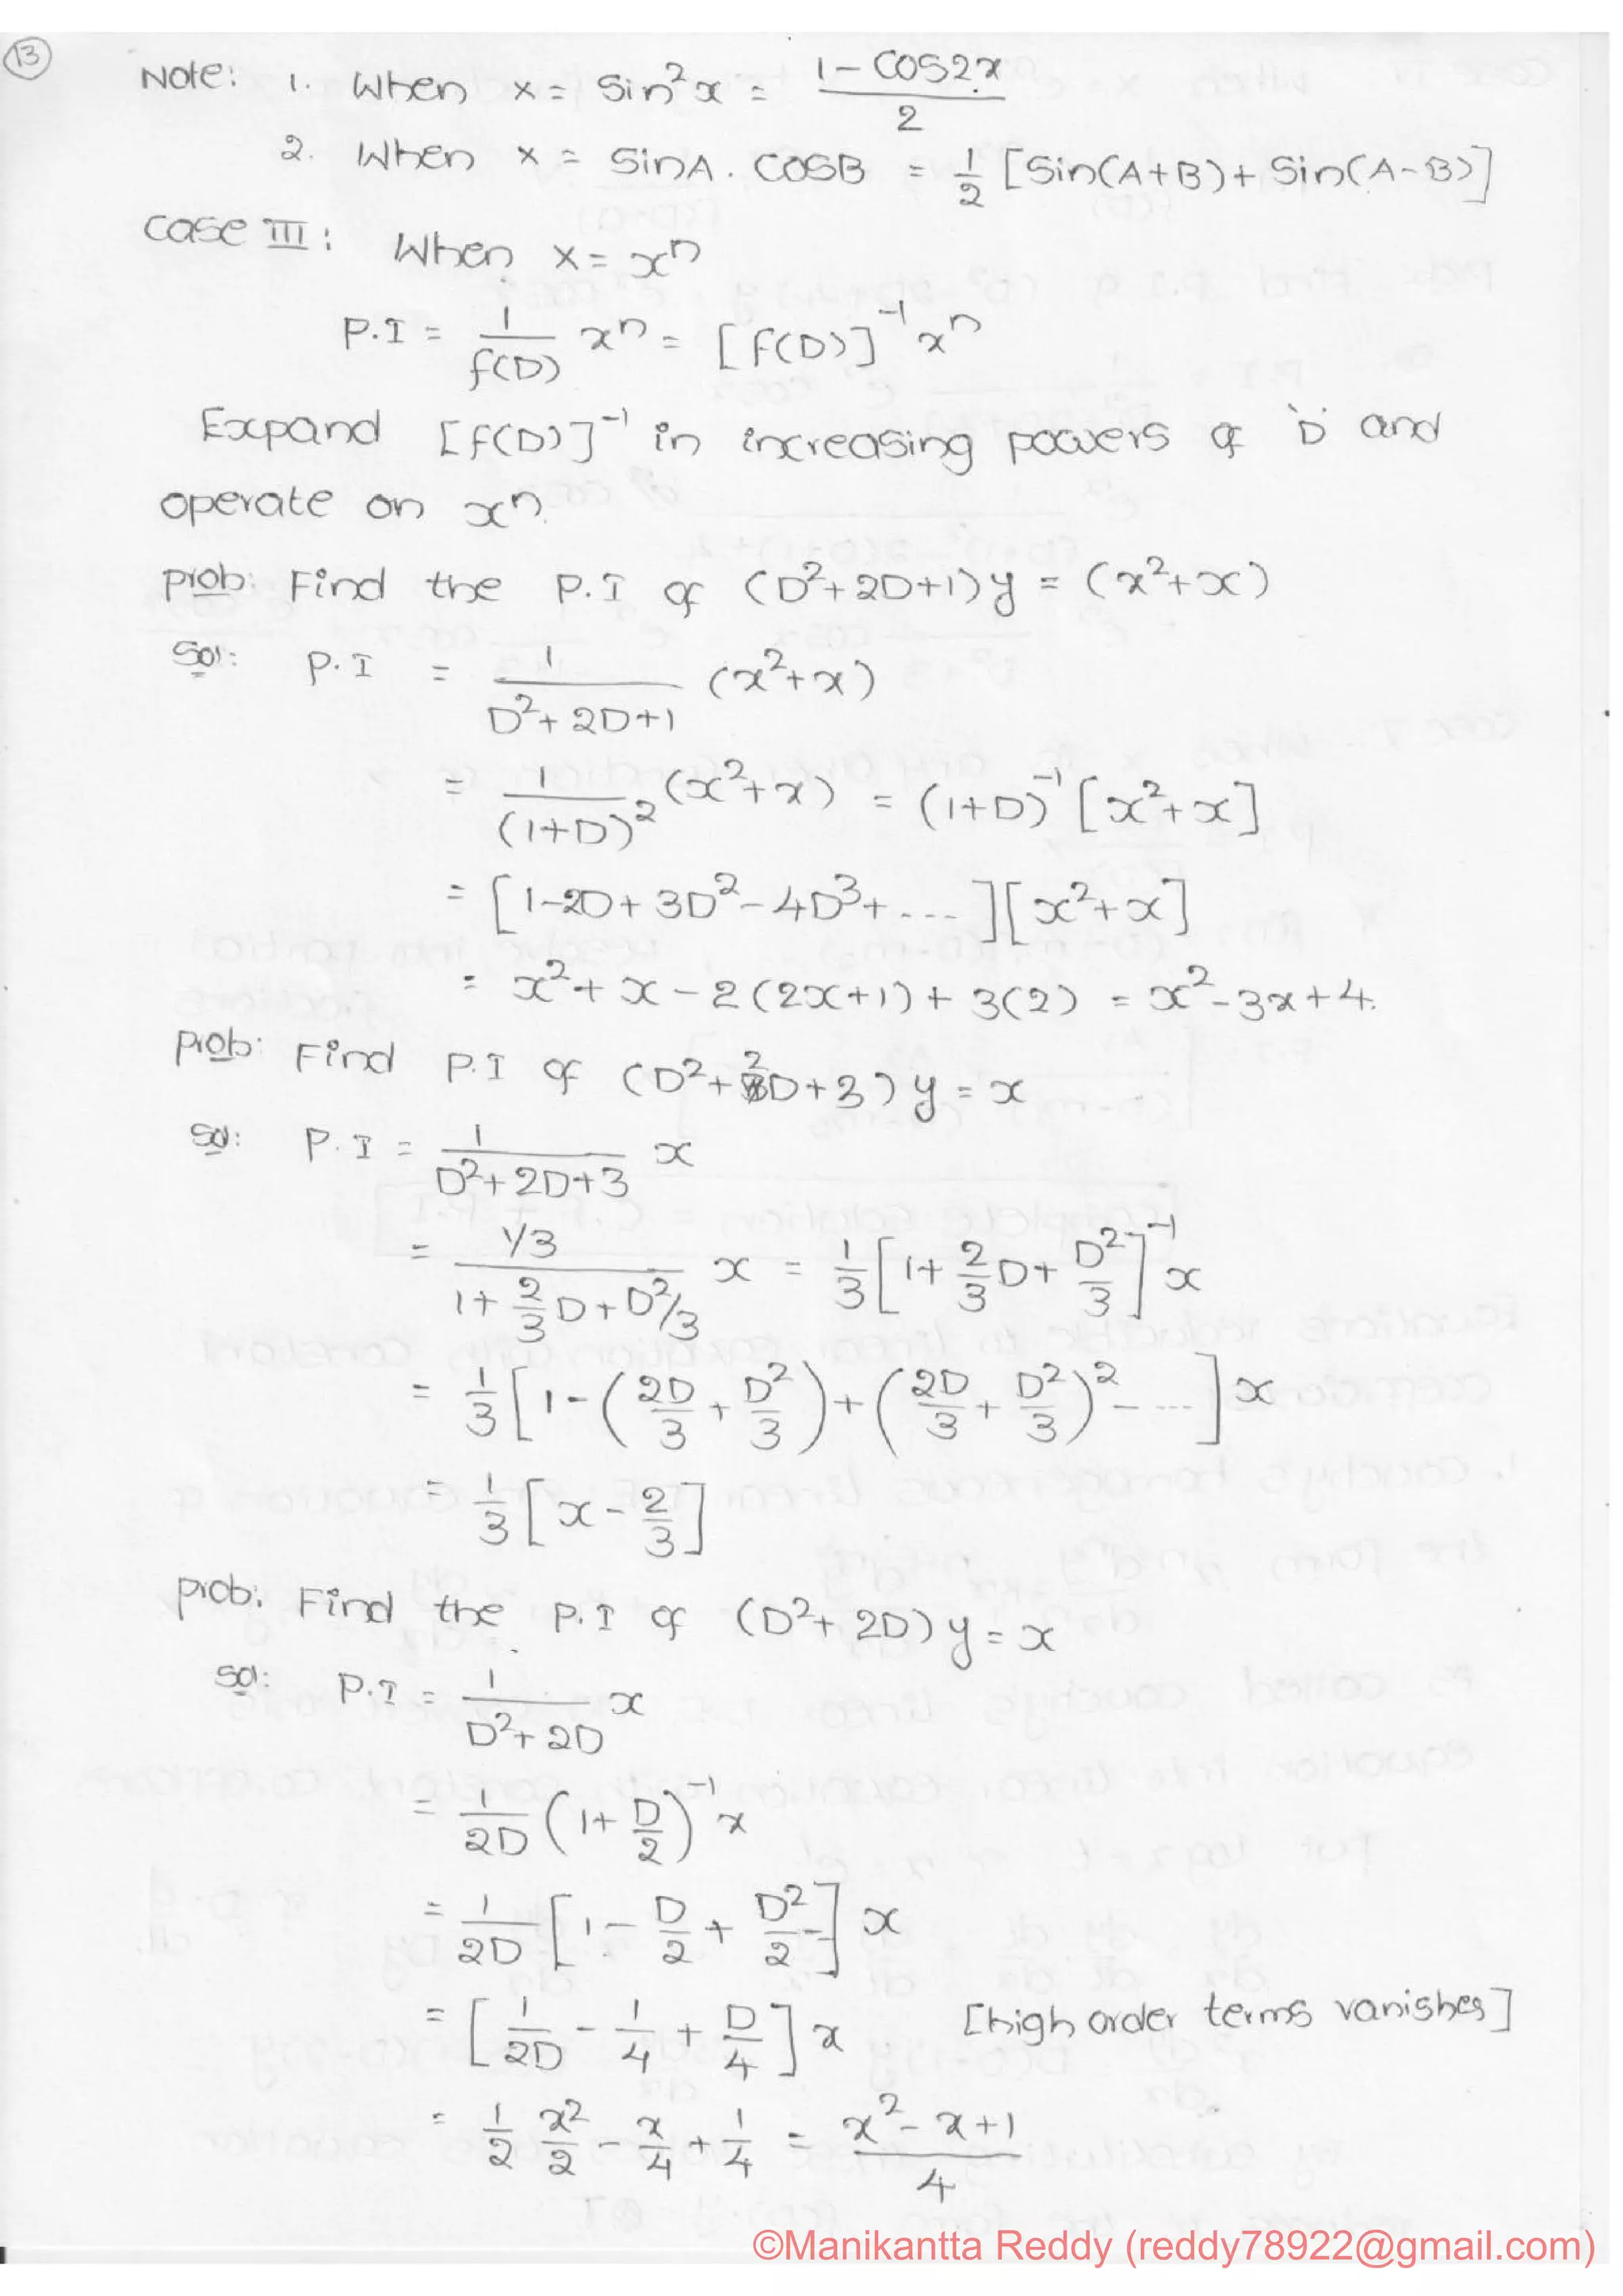 13
Note: 1. When x = Sin²x = (1 - COS2x)/2
2. When x = SinA . COSB = 1/2 [Sin(A+B) + Sin(A-B)]
Case III : When x = xⁿ
P.I = 1/f(D) xⁿ = [f(D)]⁻¹ xⁿ
Expand [f(D)]⁻¹ in increasing powers of 'D' and
operate on xⁿ.
Prob: Find the P.I of (D²+2D+1)y = (x²+x)
Sol: P.I = 1/(D²+2D+1) (x²+x)
= 1/(1+D)² (x²+x) = (1+D)⁻¹ [x²+x]
= [1-2D+3D²-4D³+....][x²+x]
= x²+x-2(2x+1)+3(2) = x²-3x+4.
Prob: Find P.I of (D²+2D+3)y = x
Sol: P.I = 1/(D²+2D+3) x
= (1/3)/(1+2/3 D+D²/3) x = 1/3 [1+2/3 D+D²/3]⁻¹ x
= 1/3 [1-(2D/3+D²/3)+(2D/3+D²/3)²-....] x
= 1/3 [x-2/3]
Prob. Find the P.I of (D²+2D)y = x
Sol: P.I = 1/(D²+2D) x
= 1/2D (1+D/2)⁻¹ x
= 1/2D [1-D/2+D²/2-] x
= [1/2D-1/4+D/4] x [high order terms vanishes]
= 1/2 x²/2 - x/4 + 1/4 = (x²-x+1)/4
©Manikantta Reddy (reddy78922@gmail.com)